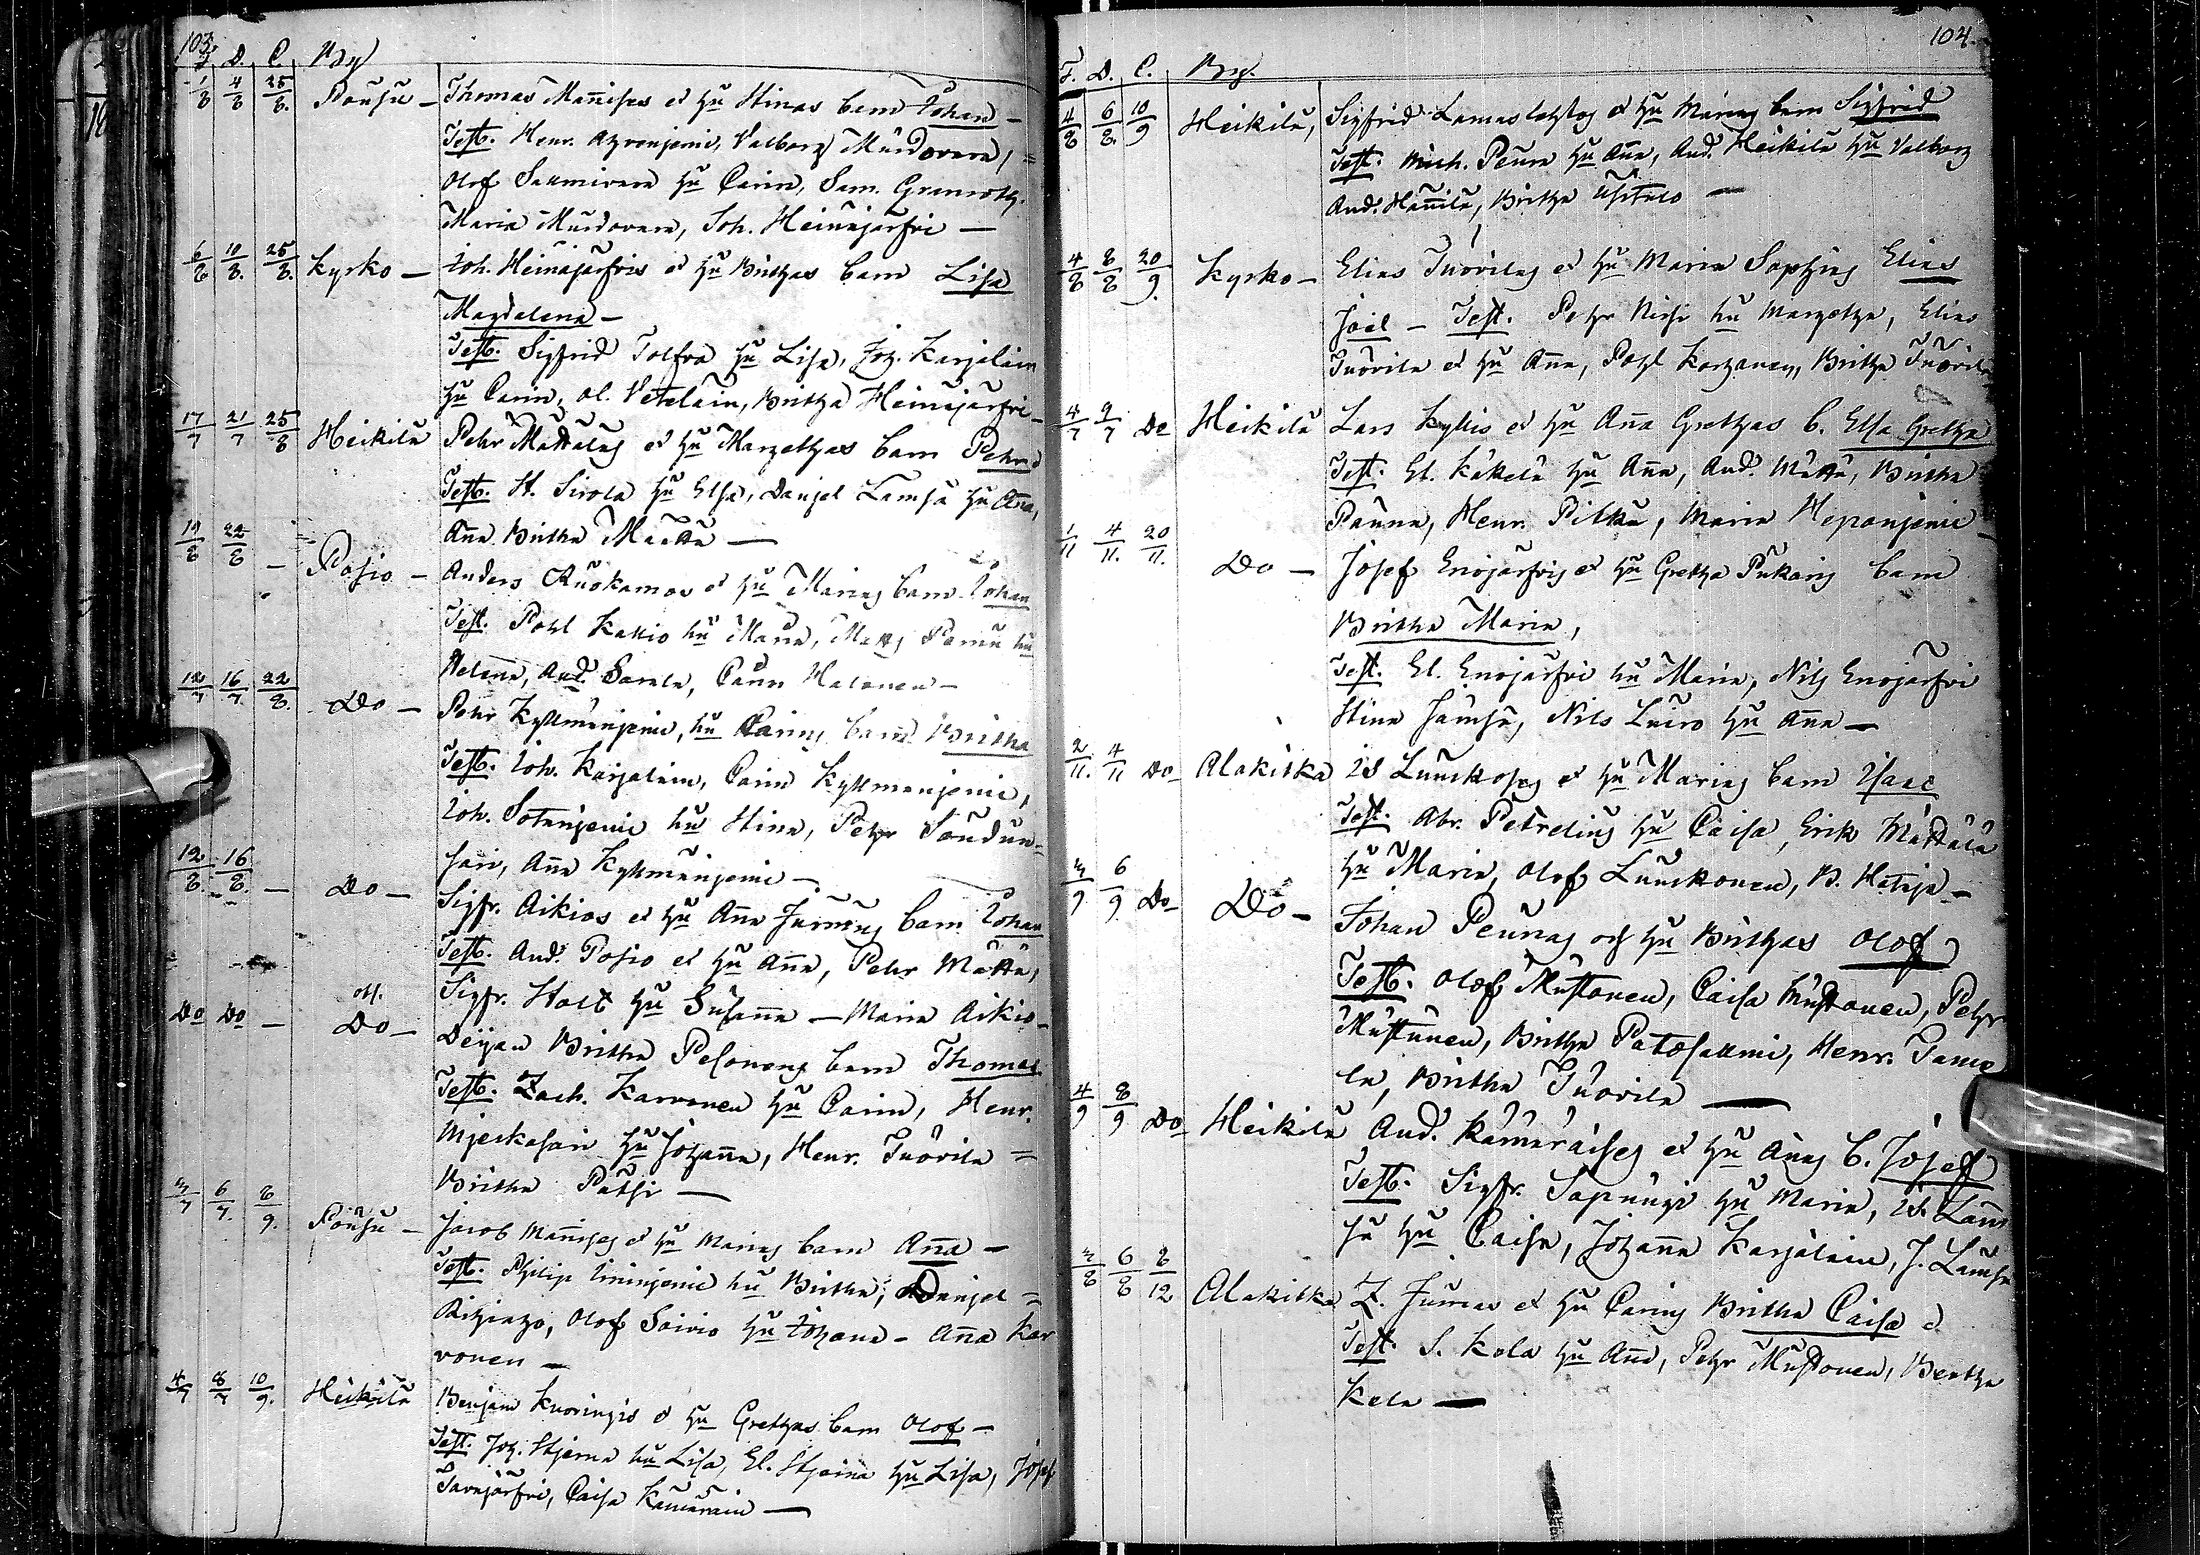 103.
F. D. C. By
1/8 4/8 25/8. Pousu — Thomas Mannises et hu Stinas barn Johan —
Test. Henr. Valborg Murdovara,
Olof Saunivara hu Carin, Sam. Granroth.
Maria Murdovara, Joh. Heinäjärfvi —
6/8 10/8. 25/8. Kyrko — Joh. Heinäjärfvis et hu Brithas barn Lisa
Magdalena —
Test. Sigfrid Tolfva hu Lisa, Joh. Karjalain
hu Carin, Ol. Vetelain, Britha Heinäjärfvi —
17/7 21/7 25/8 Heikilä Pehr Mattalas et hu Margethas barn Pehr
Test. St. Sirola hu Elsa, Daniel Lamsa hu Anna,
Anna Britha Määttä —
19/8 22/8 — Posio — Anders Ruokamos et hu Marias barn Johan
Test. Pohl Kallio hu Maria, Matts hu
Helena, And. Sarala, Halonen —
12/7 16/7. 22/8. Do — Pehr Kyllmänjemi, hu Carins barn Britha
Test. Joh. Karjalain, Carin Kyllmänjemi,
Joh. Sotanjemi hu Stina, Pehr Saudun=
sari, Anna Kyllmänjemi —
12/8. 16/8. — Do — Sigfr. Aikios et hu Anna Jumins barn Johan
Test. And. Posio et hu Anna, Pehr Mätta,
Sigfr. Stolt hu Susanna — Maria Aikio —
Do Do — Do — Deijan Britha Pesonens barn Thomas
Test. Zach. Karvonen hu Carin, Henr.
Mjeskasari hu Johanna, Henr. Tuovila =
Britha Patsi —
3/7 6/7. 8/9. Pousu — Jacob Mannises et hu Marias barn Anna —
Test. Philip Lininjemi hu Britha, Daniel =
Olof Soivio hu Johana — Anna Kar
vonen —
4/7 8/7 10/9. Heikilä Benjam Kuoringis et hu Grethas barn Olof —
Test. Joh. Stjerna hu Lisa, El. Stjerna hu Lisa, Josef
Savojärfvi, Caisa Kämäräin —
104.
F. D. C. By.
4/8 6/8. 10/9 Heikilä, Sigfrid et hu Marias barn Sigfrid
Test. Mich. Peura hu Anna, And. Heikilä hu Valborg
And. Hannila, Britha Ahitalo —
4/8 8/8 20/9. Kyrko — Elias Tuovilas et hu Maria Sophias Elias
Joel — Test. Pehr Nissi hu Margetha, Elias
Tuovila et hu Anna, Pohl Korhonen, Britha Tuovila
4/7 9/7 Do Heikilä Lars Kyllis et hu Anna Grethas b. Elsa Gretha
Test. El. Käkelä hu Anna, And. Mätta, Britha
Pauna, Henr. Pitkä, Maria Heponjemi
1/11 4/11. 20/11. Do — Josef Enojärfvis et hu Gretha Pukaris barn
Britha Maria,
Test. El. Enojärfvi hu Maria, Nils Enojärfvi
Stina Jämsä, Nils Luiro hu Anna —
2/11. 4/11 Do Alakitka Is Luuskoses et hu Marias barn Isaac
Test. Abr. Petrelius hu Caisa, Erik Mättälä
hu Maria, Olof Luuskonen, B. Hataja —
3/9 6/9 Do Do — Johan Peuras och hu Brithas Olof
Test. Olof Mustonen, Caisa Mustonen, Pehr
Mustonen, Britha Patosalmi, Henr. Tame
la, Britha Tuovila —
4/9 8/9 Do Heikilä And. Kämäräises et hu Annas b. Josef
Test. Sigfr. Sapungi hu Maria, Is. Läm
sä hu Caisa, Johanna Karjalain, J. Lämsä
3/8 6/8 2/12 Alakitka Z. Jumas et hu Carins Britha Caisa
Test. S. Kela hu Anna, Pehr Mustonen, Beatha
Kela —